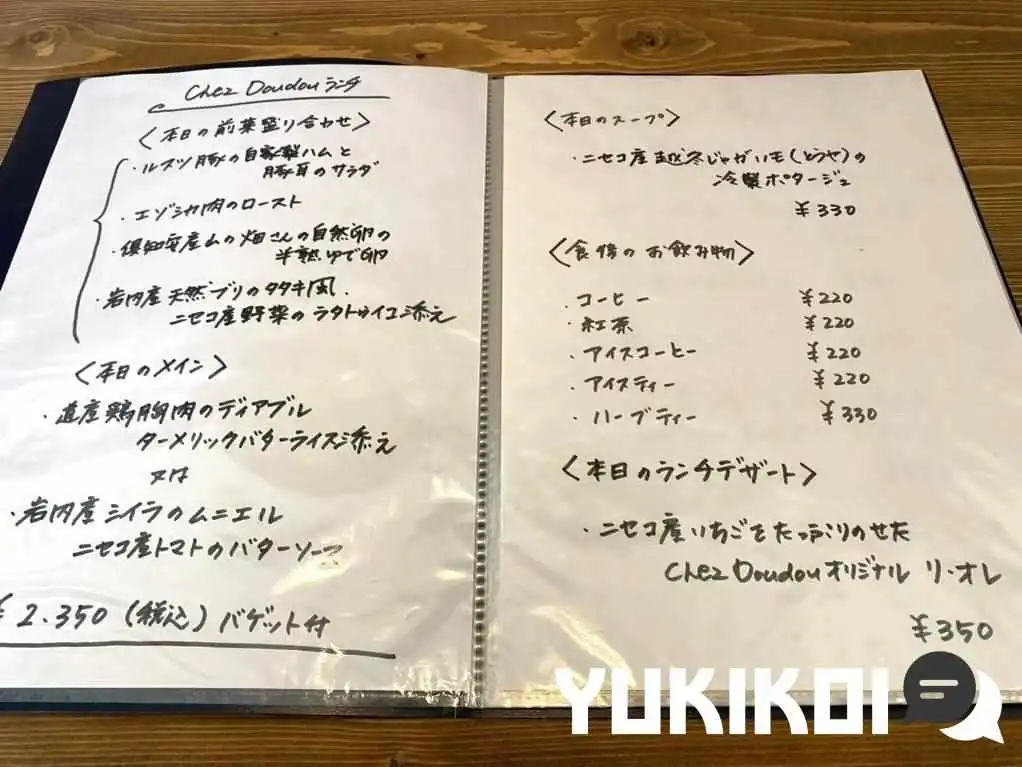 Chez Doudou ランチ
〈本日の前菜盛り合わせ〉
・ルスツ豚の自家製ハムと
豚耳のサラダ
・エゾシカ肉のロースト
・倶知安産ムの畑さんの自然卵の
半熟ゆで卵
・岩内産天然ブリのタタキ風
ニセコ産野菜のラタトゥイユ添え
〈本日のメイン〉
・道産鶏胸肉のディアブル
ターメリックバターライス添え
又は
・岩内産シイラのムニエル
ニセコ産トマトのバターソース
¥2.350(税込)バゲット付
〈本日のスープ〉
・ニセコ産越冬じゃがいも(とうや)の
冷製ポタージュ
¥330
〈食後のお飲み物〉
・コーヒー ¥220
・紅茶 ¥220
・アイスコーヒー ¥220
・アイスティー ¥220
・ハーブティー ¥330
〈本日のランチデザート〉
・ニセコ産いちごをたっぷりのせた
Chez Doudouオリジナル リ・オレ
¥350
YUKIKOI